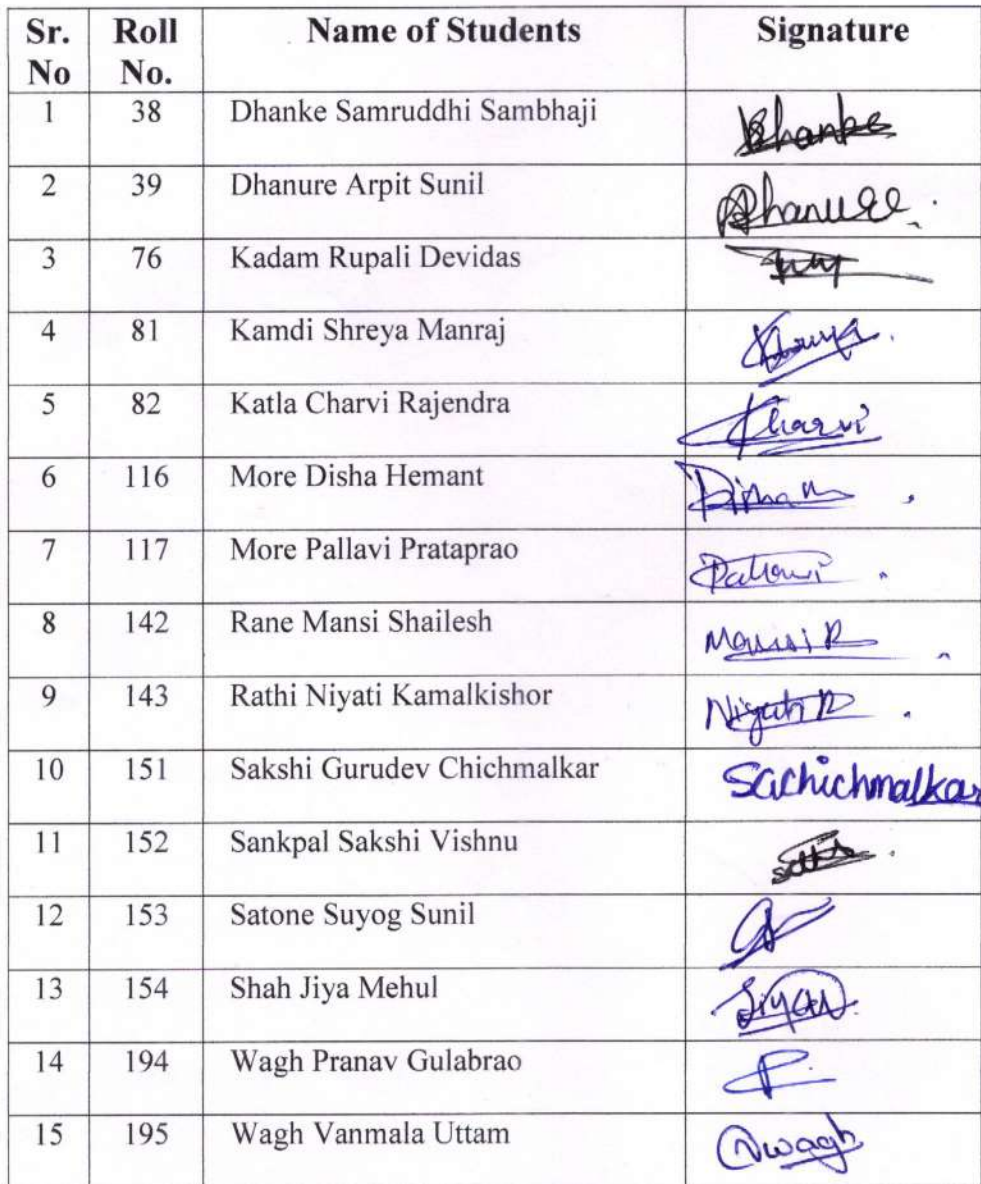 Sr. No Roll No. Name of Students Signature
1 38 Dhanke Samruddhi Sambhaji Dhanke
2 39 Dhanure Arpit Sunil Dhanure
3 76 Kadam Rupali Devidas
4 81 Kamdi Shreya Manraj
5 82 Katla Charvi Rajendra Charvi
6 116 More Disha Hemant Disha
7 117 More Pallavi Prataprao Pallavi
8 142 Rane Mansi Shailesh Mansi R
9 143 Rathi Niyati Kamalkishor Niyati R
10 151 Sakshi Gurudev Chichmalkar Sachichmalkar
11 152 Sankpal Sakshi Vishnu
12 153 Satone Suyog Sunil
13 154 Shah Jiya Mehul Jiya
14 194 Wagh Pranav Gulabrao P.
15 195 Wagh Vanmala Uttam Vwagh